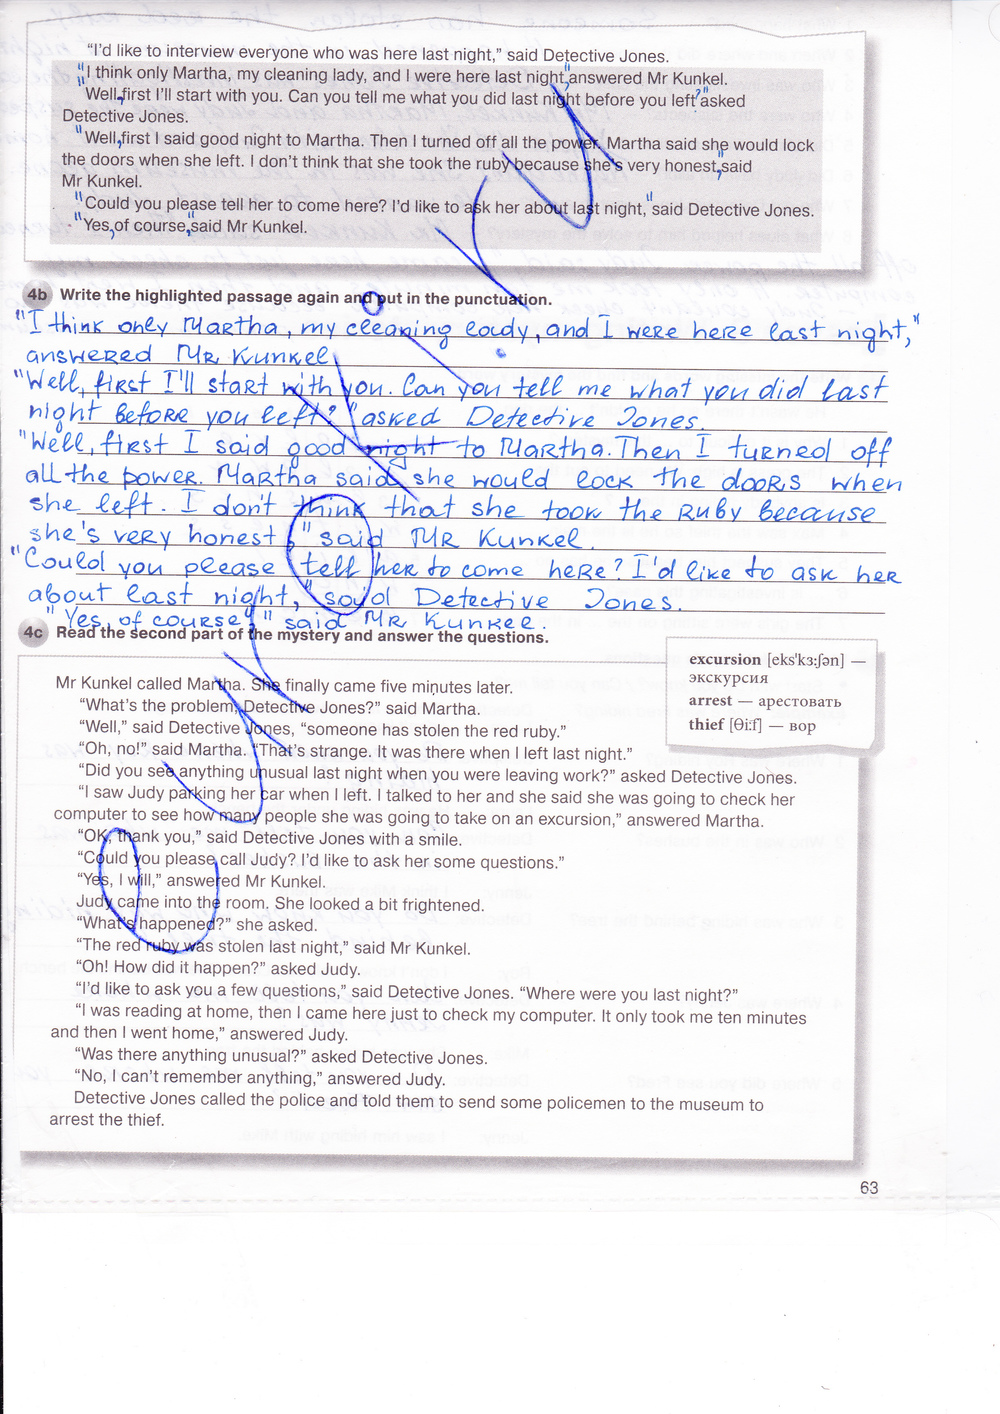 “I’d like to interview everyone who was here last night,” said Detective Jones.
"I think only Martha, my cleaning lady, and I were here last night," answered Mr Kunkel.
"Well, first I’ll start with you. Can you tell me what you did last night before you left?" asked
Detective Jones.
"Well, first I said good night to Martha. Then I turned off all the power. Martha said she would lock
the doors when she left. I don’t think that she took the ruby because she’s very honest," said
Mr Kunkel.
"Could you please tell her to come here? I’d like to ask her about last night," said Detective Jones.
"Yes, of course," said Mr Kunkel.
4b Write the highlighted passage again and put in the punctuation.
"I think only Martha, my cleaning lady, and I were here last night,"
answered Mr Kunkel.
"Well, first I'll start with you. Can you tell me what you did last
night before you left?" asked Detective Jones.
"Well, first I said good night to Martha. Then I turned off
all the power. Martha said she would lock the doors when
she left. I don't think that she took the ruby because
she's very honest," said Mr Kunkel.
"Could you please tell her to come here? I'd like to ask her
about last night," said Detective Jones.
"Yes, of course," said Mr Kunkel.
4c Read the second part of the mystery and answer the questions.
excursion [eks'kɜ:ʃən] —
экскурсия
arrest — арестовать
thief [θi:f] — вор
Mr Kunkel called Martha. She finally came five minutes later.
“What’s the problem, Detective Jones?” said Martha.
“Well,” said Detective Jones, “someone has stolen the red ruby.”
“Oh, no!” said Martha. “That’s strange. It was there when I left last night.”
“Did you see anything unusual last night when you were leaving work?” asked Detective Jones.
“I saw Judy parking her car when I left. I talked to her and she said she was going to check her
computer to see how many people she was going to take on an excursion,” answered Martha.
“OK, thank you,” said Detective Jones with a smile.
“Could you please call Judy? I’d like to ask her some questions.”
“Yes, I will,” answered Mr Kunkel.
Judy came into the room. She looked a bit frightened.
“What’s happened?” she asked.
“The red ruby was stolen last night,” said Mr Kunkel.
“Oh! How did it happen?” asked Judy.
“I’d like to ask you a few questions,” said Detective Jones. “Where were you last night?”
“I was reading at home, then I came here just to check my computer. It only took me ten minutes
and then I went home,” answered Judy.
“Was there anything unusual?” asked Detective Jones.
“No, I can’t remember anything,” answered Judy.
Detective Jones called the police and told them to send some policemen to the museum to
arrest the thief.
63